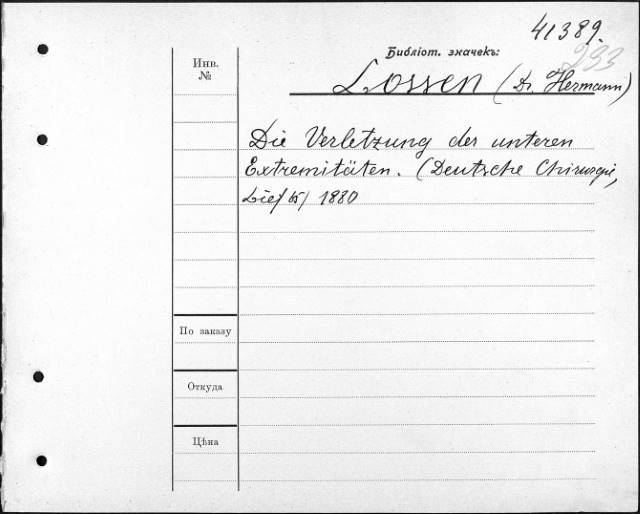 41389.
233
Библіот. значекъ:
Инв.
№
Lossen (Dr. Hermann)
Die Verletzung der unteren
Extremitäten. (Deutsche Chirurgie,
Lief 65) 1880
По заказу
Откуда
Цѣна